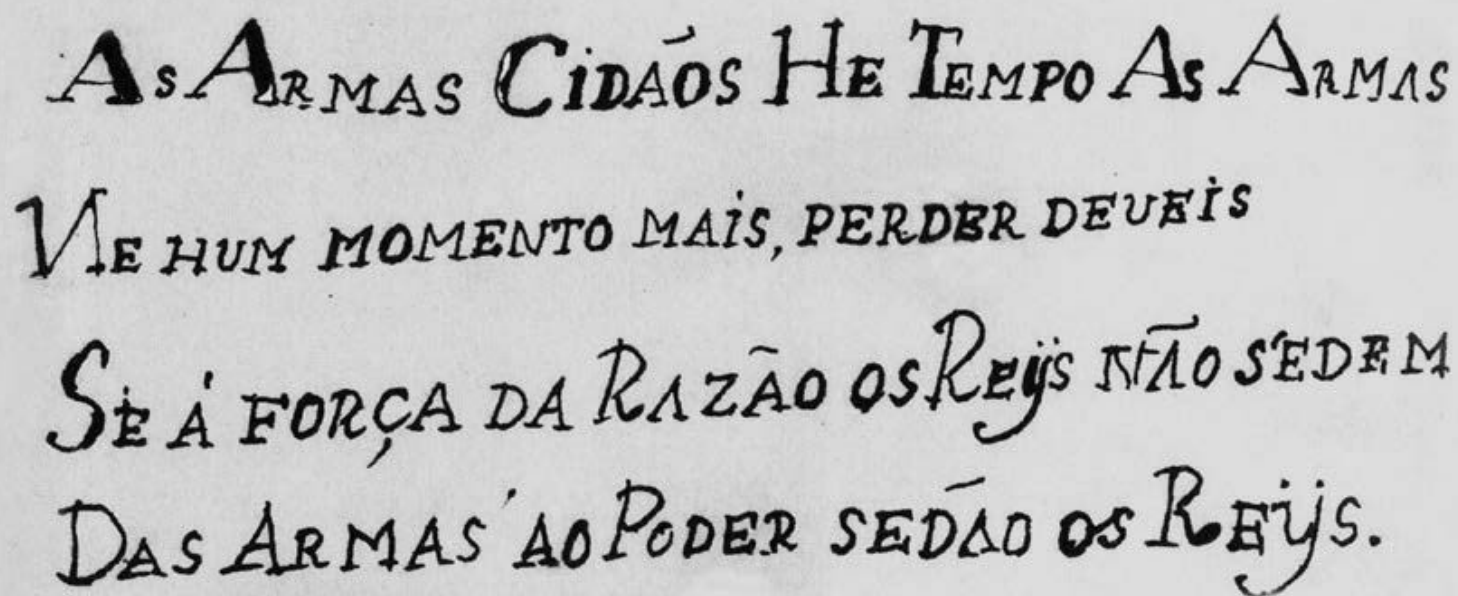 As Armas Cidãos He Tempo As Armas
Ne hum momento mais, perder deveis
Se á força da Razão os Reijs não sedem
Das Armas ao Poder sedão os Reijs.